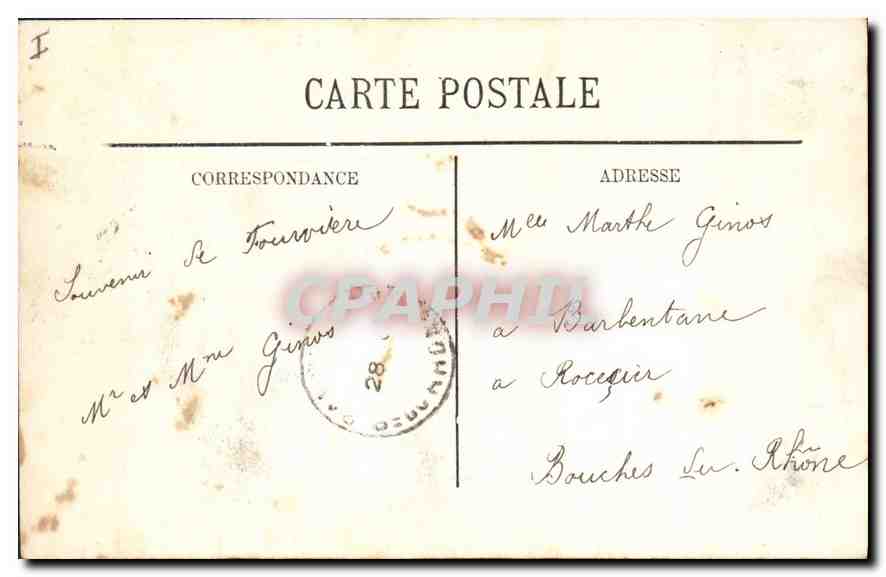 I
CARTE POSTALE
CORRESPONDANCE
Souvenir de Fourvière
Mr et Mme Ginos
ADRESSE
Mlle Marthe Ginos
a Barbentane
a
Bouches du. Rhône
CPAPHIL
28